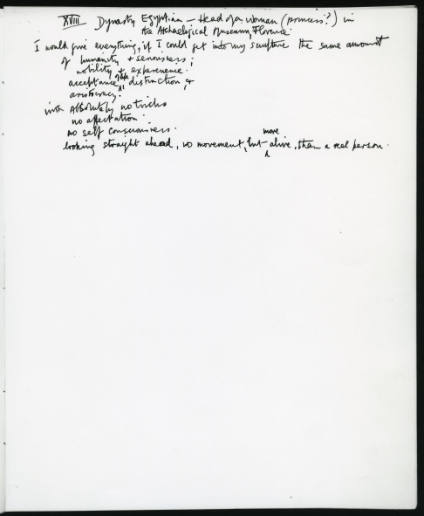 XVIII Dynasty Egyptian – Head of a woman (princess?) in
the Archaelogical Museum, Florence.
I would give everything, if I could get into my sculpture the same amount
of humanity & seriousness;
nobility & experience.
acceptance of life, distinction, &
aristocracy.
with absolutely no tricks
no affectation.
no self consciousness.
looking straight ahead, no movement, but more alive, than a real person.